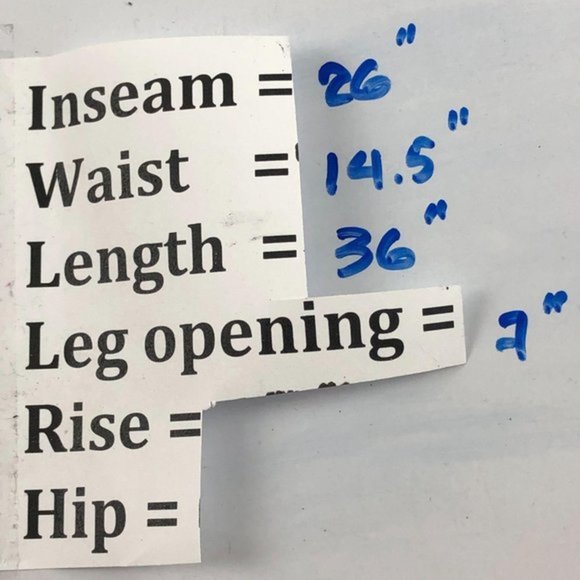 Inseam = 26"
Waist = 14.5"
Length = 36"
Leg opening = 7"
Rise =
Hip =